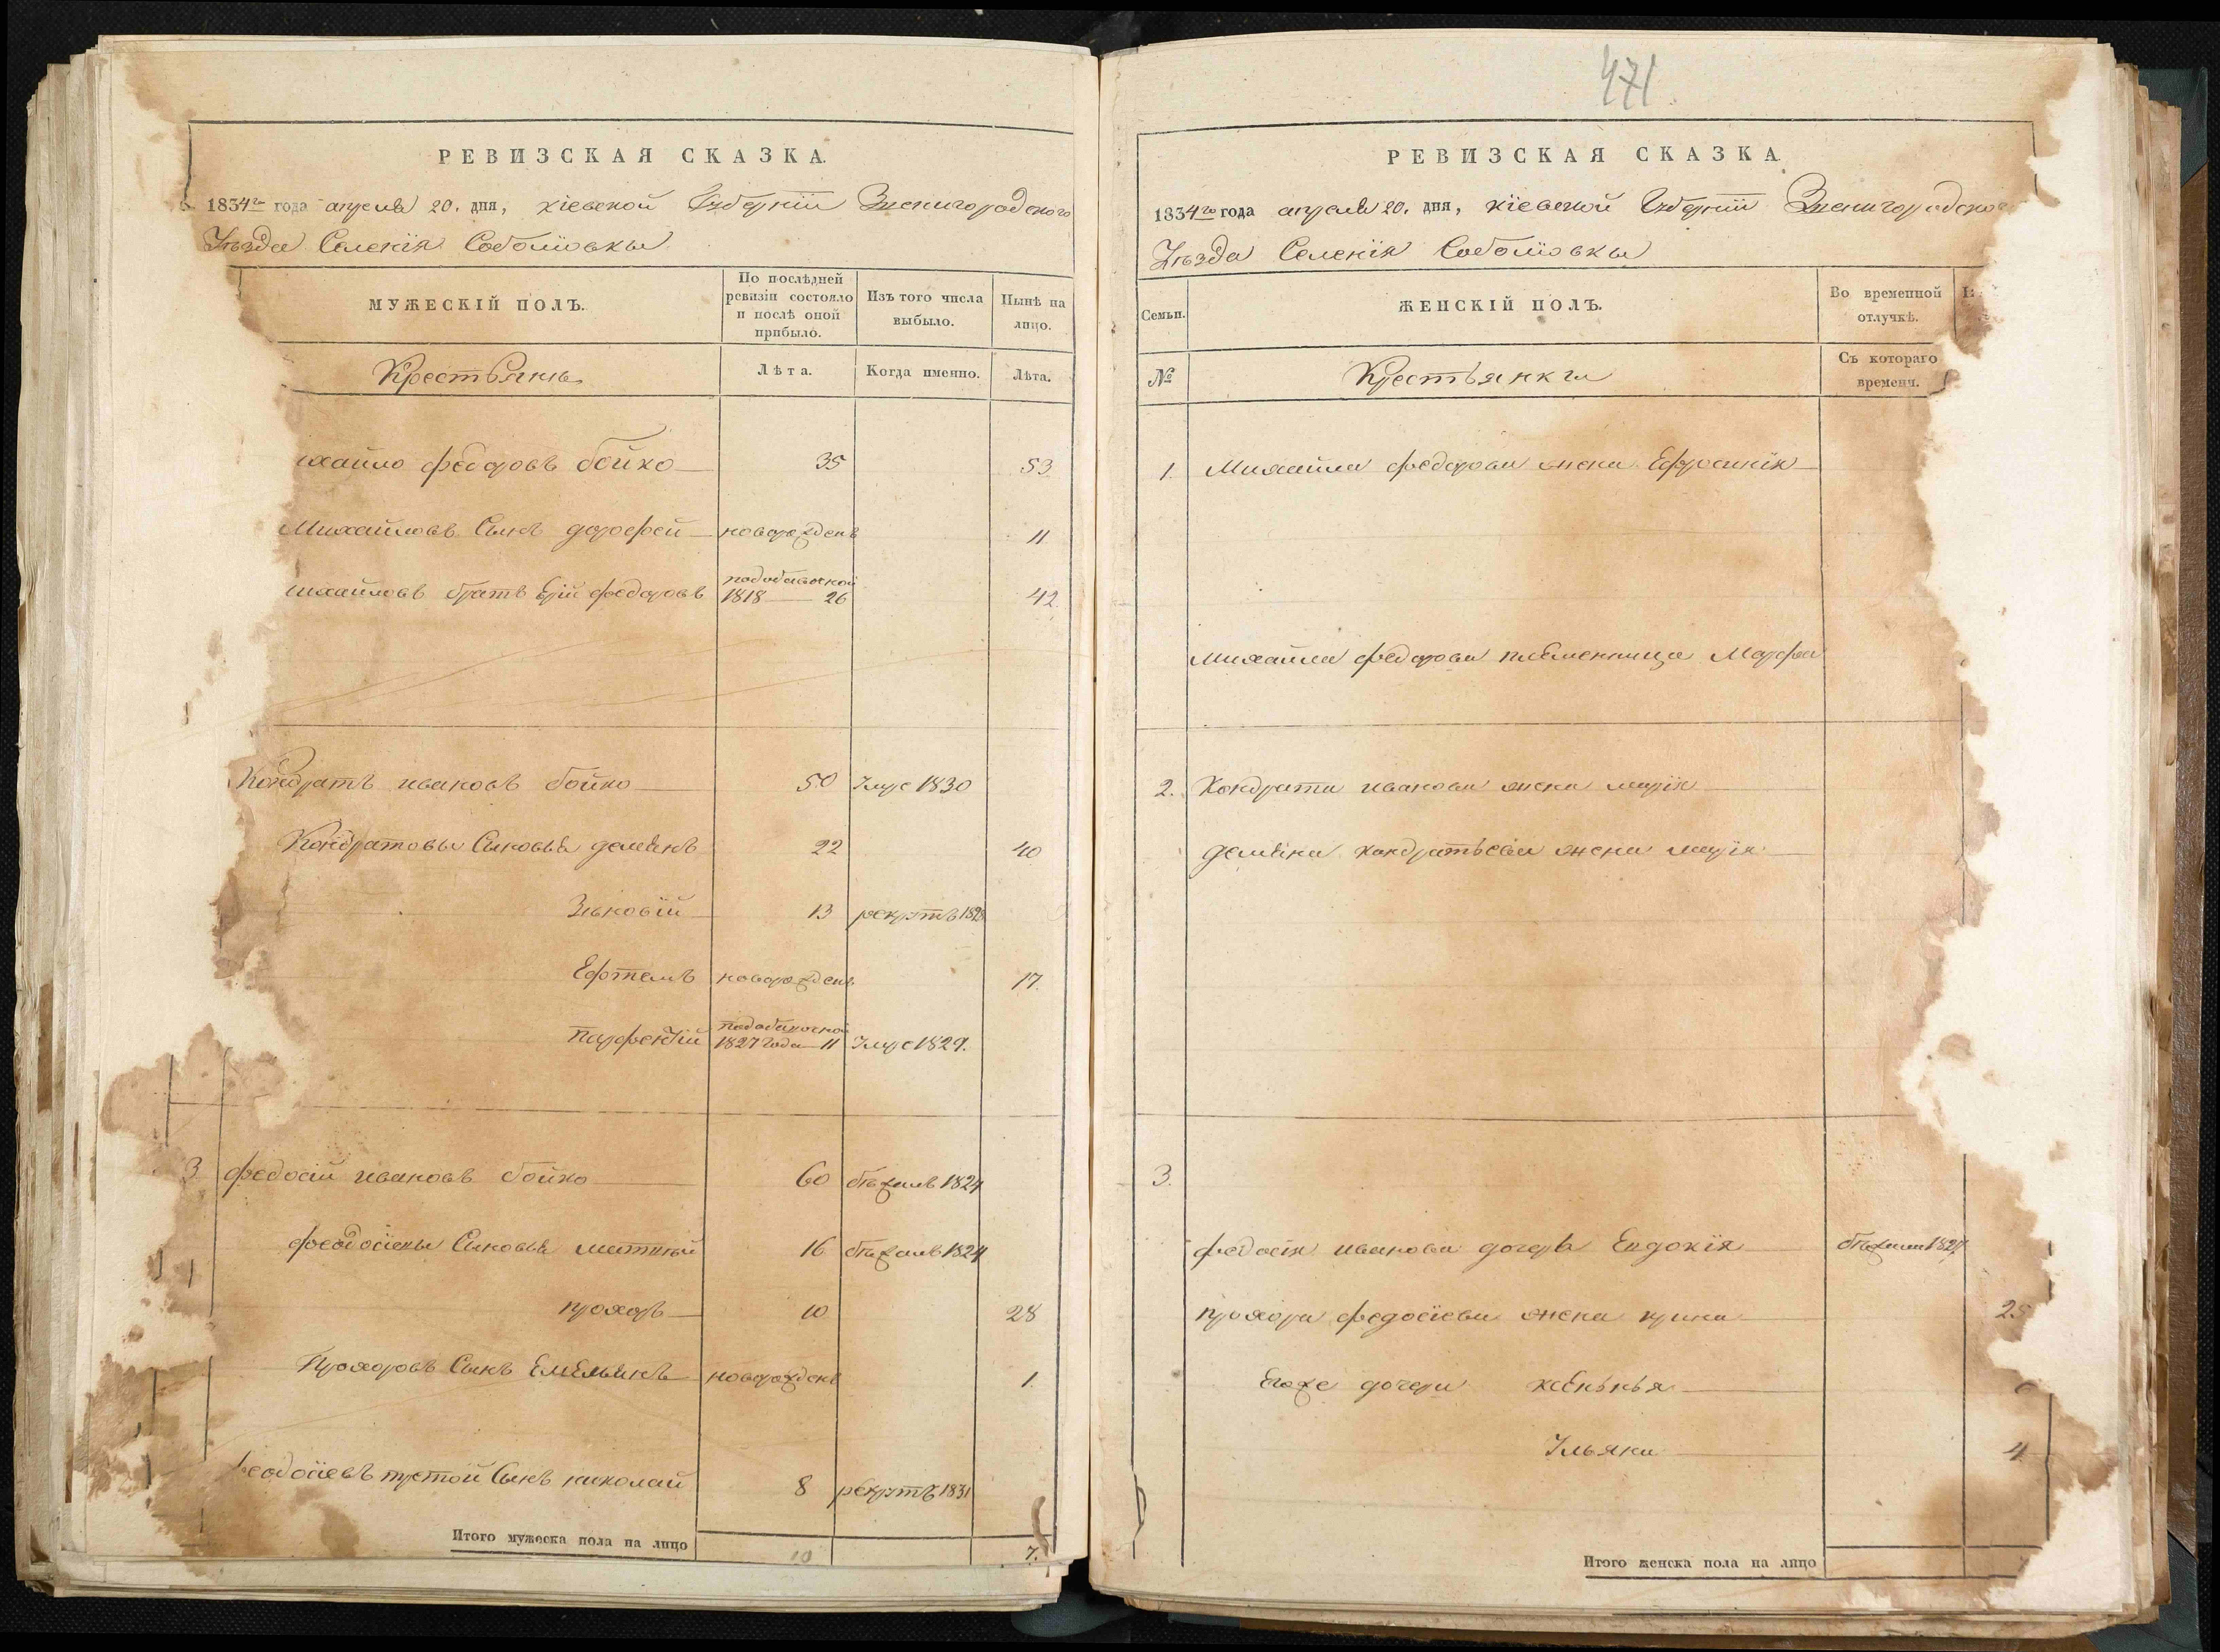 РЕВИЗСКАЯ СКАЗКА.
1834го года апреля 20. дня, кіевской Губерніи Звенигородского
Уѣзда Селенія Соболіовкы
МУЖЕСКІЙ ПОЛЪ.
По послѣдней ревизіи состояло и послѣ оной прибыло.
Изъ того числа выбыло.
Нынѣ на лицо.
Крестьяне
Лѣта.
Когда именно.
Лѣта.
ихайло федоровъ бойко 35 53
Михайловъ Сынъ дорофей новорожденъ 11
михайловъ братъ Ерій федоровъ 1818 26 42
Кондратъ ивановъ бойко 50 Умре 1830
Кондратовы Сыновья демянъ 22 40
Зѣновій 13 рекрутъ
Ефтемъ новорожденъ 17.
парфентій 1827 года 11 Умре 1829.
3 федосій ивановъ бойко 60 бѣжалъ 1824
феодосіевы Сыновья матвѣй 16 бѣжалъ 1824
прохоръ 10 28
Прохоровъ Сынъ Емельянъ новорожденъ 1.
еодосіевъ третой Сынъ николай 8 рекрутъ 1831
Итого мужеска пола на лицо 10 7.
471
РЕВИЗСКАЯ СКАЗКА
1834го года апреля 20. дня, кіевской Губерніи Звенигородско
Уѣзда Селенія Соболіовкы
Семьи.
ЖЕНСКІЙ ПОЛЪ.
Во временной отлучкѣ.
№
Крестьянки
Съ котораго времени.
1. Михайла федорова жена Ефросинія
михайла федорова племенница Марфа
2. Кондрата иванова жена марія
демяна кондратьева жена марія
3.
федосія иванова дочерь Евдокія бѣжала
прохора федосіева жена ирина 25
Егоже дочери ксеньнья
Ульяна 4
Итого женска пола на лицо